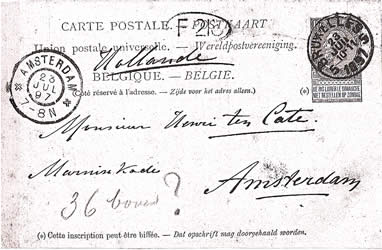 CARTE POSTALE. - POSTKAART
F 213
Union postale universelle. - Wereldpostvereeniging.
Hollande
BELGIQUE. - BELGIE.
Côté réservé à l'adresse. - Zijde voor het adres alleen.)
AMSTERDAM
23
JUL
97
7-8N
BRUXELLES
23
JUIL
1897
NE PAS LIVRER LE DIMANCHE
NIET BESTELLEN OP ZONDAG
Monsieur Henri ten Cate.
Amsterdam
36 boven?
(*) Cette inscription peut être biffée. - Dat opschrift mag doorgehaald worden.